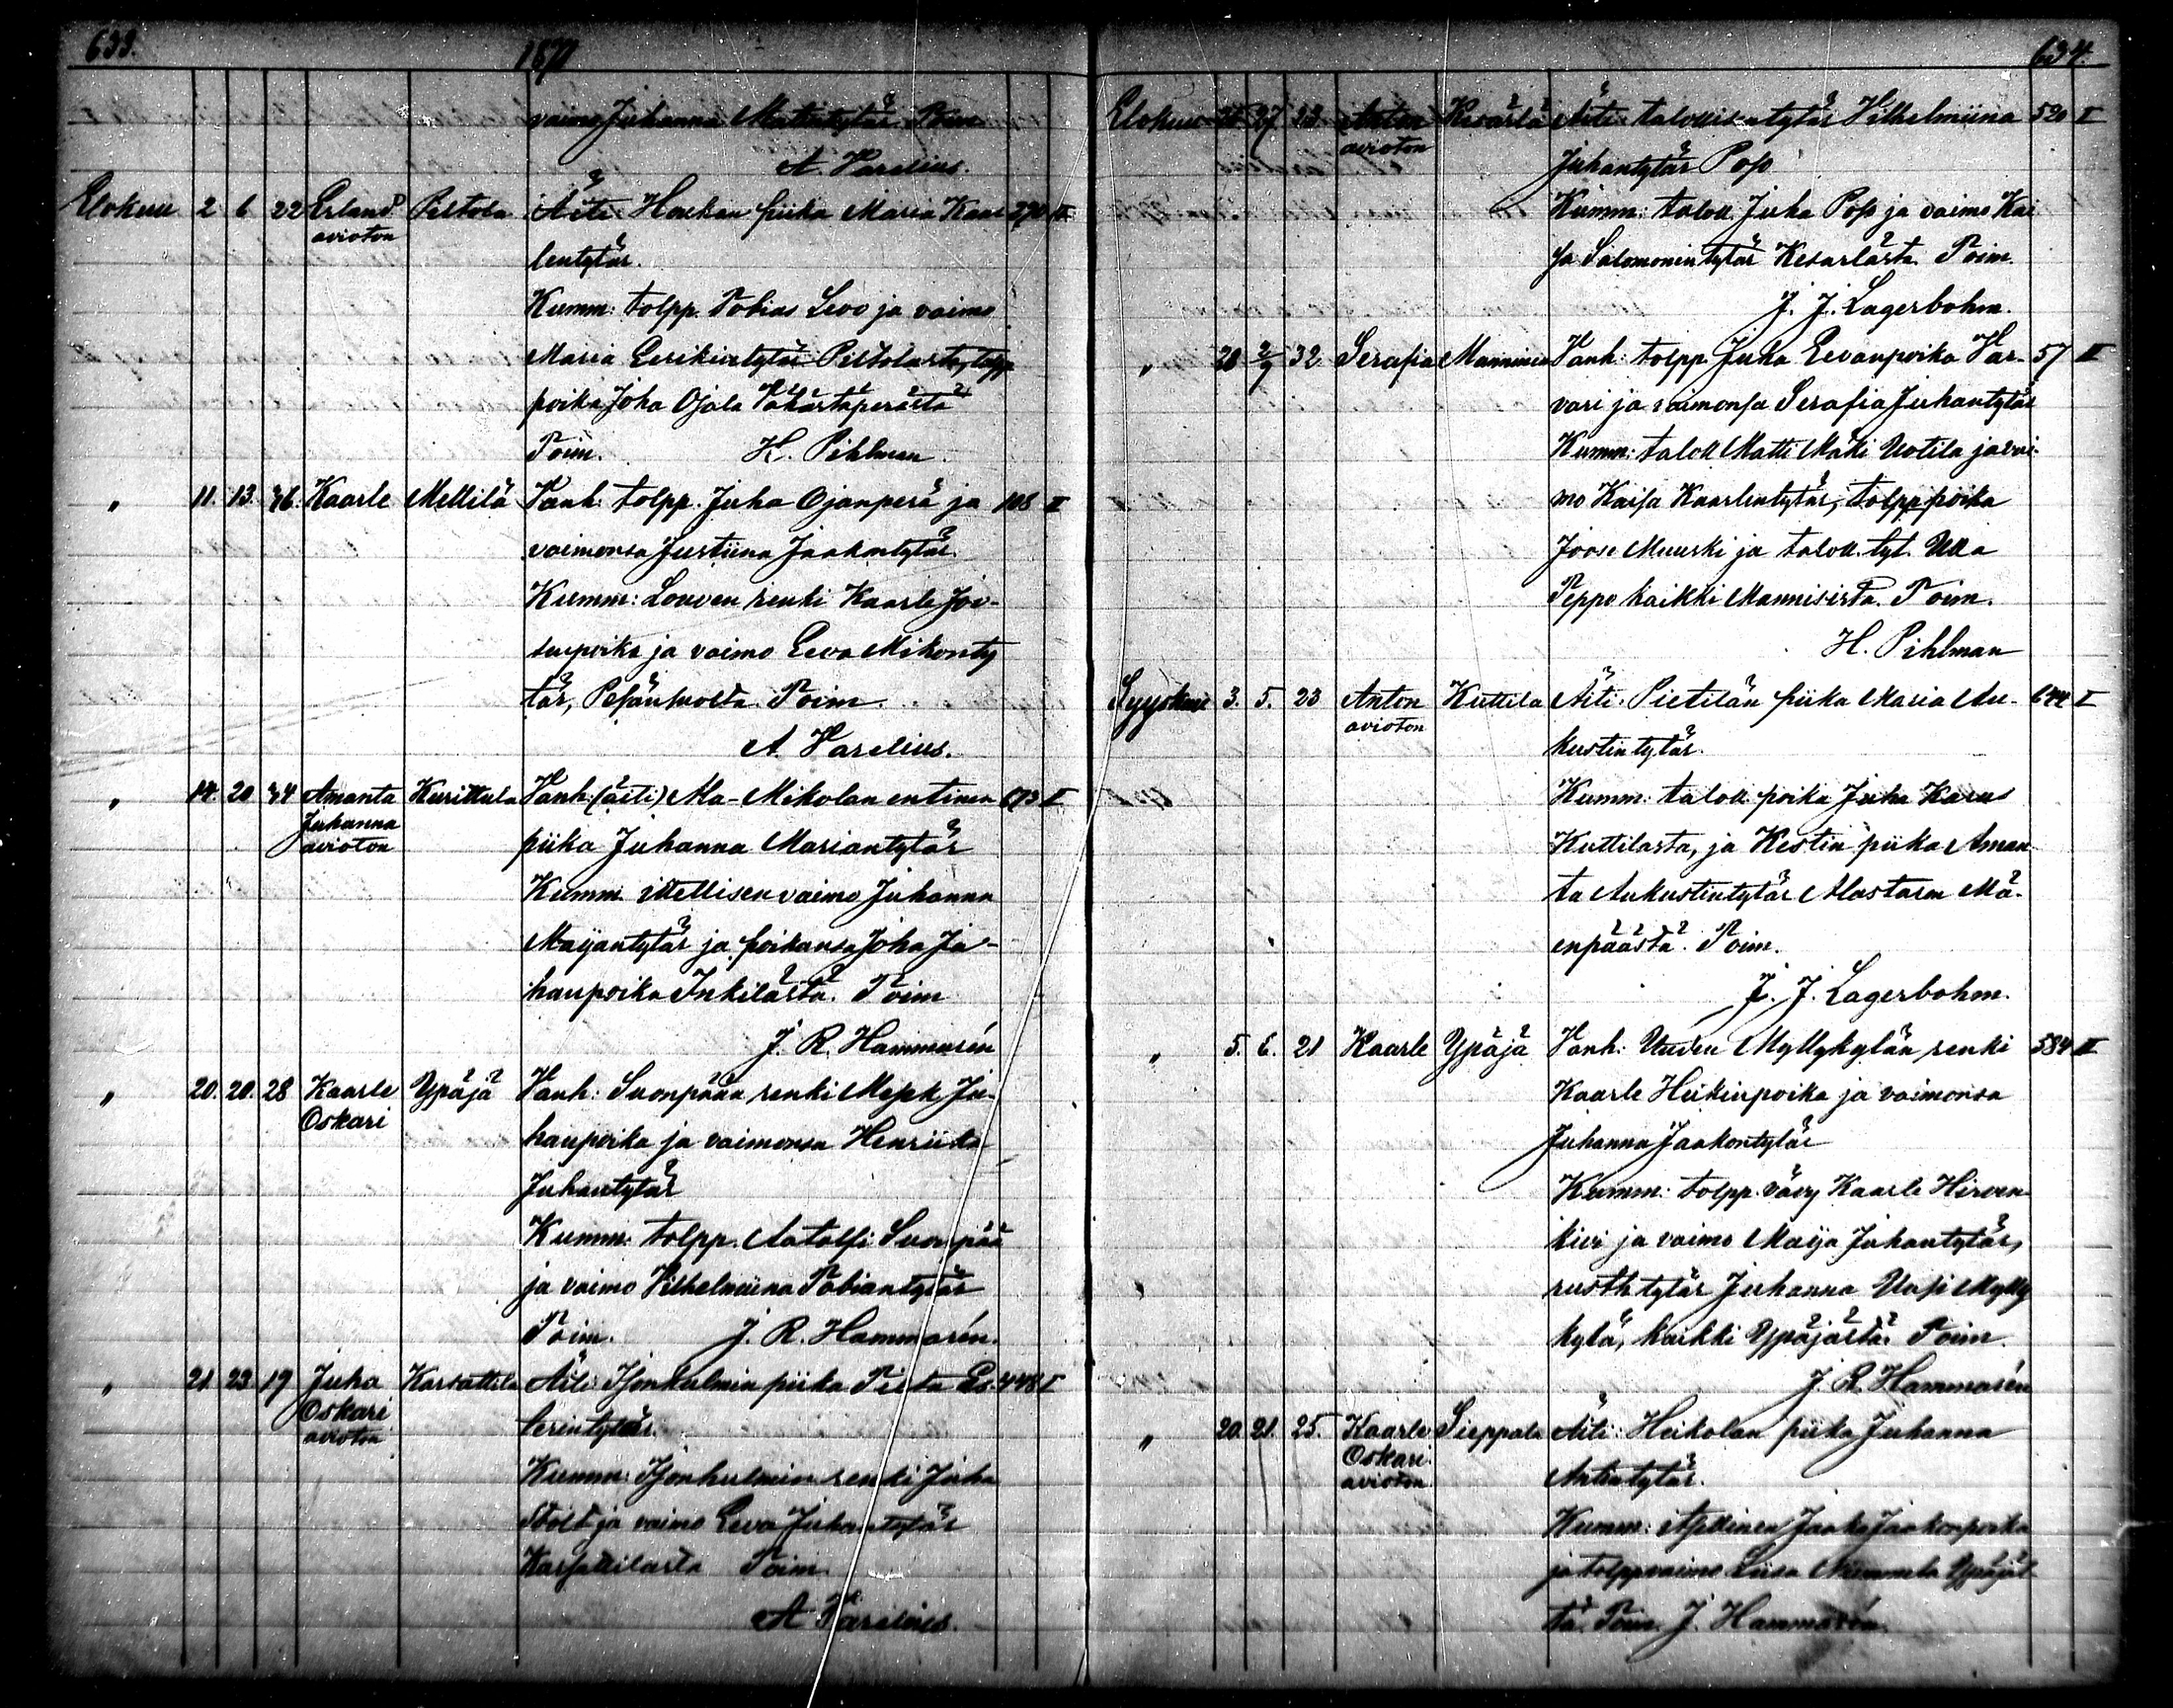 633.
1871
vaimo Juhanna Matintytär Poim
A. Varelius.
Elokuu 2 6 22 Erland Piltola Äiti: Houkan piika Maria Kaar 270 II
avioton
lentytär.
Kumm: tolpp. Tobias Levo ja vaimo
Maria Eerikintytär Piltolasta, tolpp
poika Joha Ojala
Toim. H. Pihlman
" 11. 13. 36. Kaarle Mellilä Vanh: tolpp. Juha Ojanperä ja 108 II
vaimonsa Justiina Jaakontytär.
Kumm: Louven renki Kaarle Joo-
senpoika ja vaimo Eeva Mikonty
tär, Toim
A. Varelius.
" 14. 20. 34 Amanta Kurittula Vanh: (äiti) Ala-Mikolan entinen 673 I
Juhanna
avioton
piika Juhanna Mariantytär
Kumm. ittellisen vaimo Juhanna
Maijantytär ja poikansa Joha Ju-
hanpoika Inkilästä. Toim
J. R. Hammarén
" 20. 20. 28 Kaarle Ypäjä Vanh: Suonpään renki Ju-
Oskari
hanpoika ja vaimonsa Henriika
Juhantytär
Kumm: tolpp. Aatolfi Suonpää
ja vaimo Vilhelmiina Tobiantytär
Toim. J. R. Hammarén.
" 21. 23 19 Juha Karsattila Äiti: piika 448 I
Oskari
avioton
terintytär.
Kumm: renki Juha
Stolt ja vaimo Eeva Juhantytär
Karsattilasta Toim
A Varelius.
634
Elokuu 27 23 Anton Kesärlä Äiti: talollisen tytär Vilhelmiina 520 I
avioton
Juhantytär Pos
Kumm: taloll. Juha Pos ja vaimo Kai
sa Salomonintytär Kesärlästä Toim.
J. J. Lagerbohm.
" 28 2/9 32 Serafia Manninen Vanh: tolpp Juha Eevanpoika Var- 57 II
vari ja vaimonsa Serafia Juhantytär
Kumm: taloll Matti Mäki Uotila ja vai-
mo Kaisa Kaarlentytär, tolpp poika
Joose Muurki ja taloll. tyt. Ulla
Peppo kaikki Mannisista. Toim.
H. Pihlman
Syyskuu 3. 5. 23 Anton Kuttila Äiti: Pietilän piika Maria Au- 644 I
avioton
kustintytär.
Kumm: taloll poika Juha Karus
Kuttilasta, ja Kestin piika Aman
ta Aukustintytär Alastaron Mä-
enpäästä. Toim.
J. J. Lagerbohm.
" 5. 6. 21 Kaarle Ypäjä Vanh: Uuden Myllykylän renki 584 II
Kaarle Heikinpoika ja vaimonsa
Juhanna Jaakontytär
Kumm: tolpp. vävy Kaarle Hirven
kivi ja vaimo Maija Juhantytär,
rusth tytär Juhanna Uusi Mylly
kylä, kaikki Ypäjästä. Toim.
J. R. Hammarén
" 20. 21. 25. Kaarle Sieppala Äiti: Heikolan piika Juhanna
Oskari
avioton
Antintytär.
Kumm: Jaako Jaakonpoika
ja tolpp vaimo Liisa Niemmelä Ypäjäl
tä. Toim. J. Hammarén.